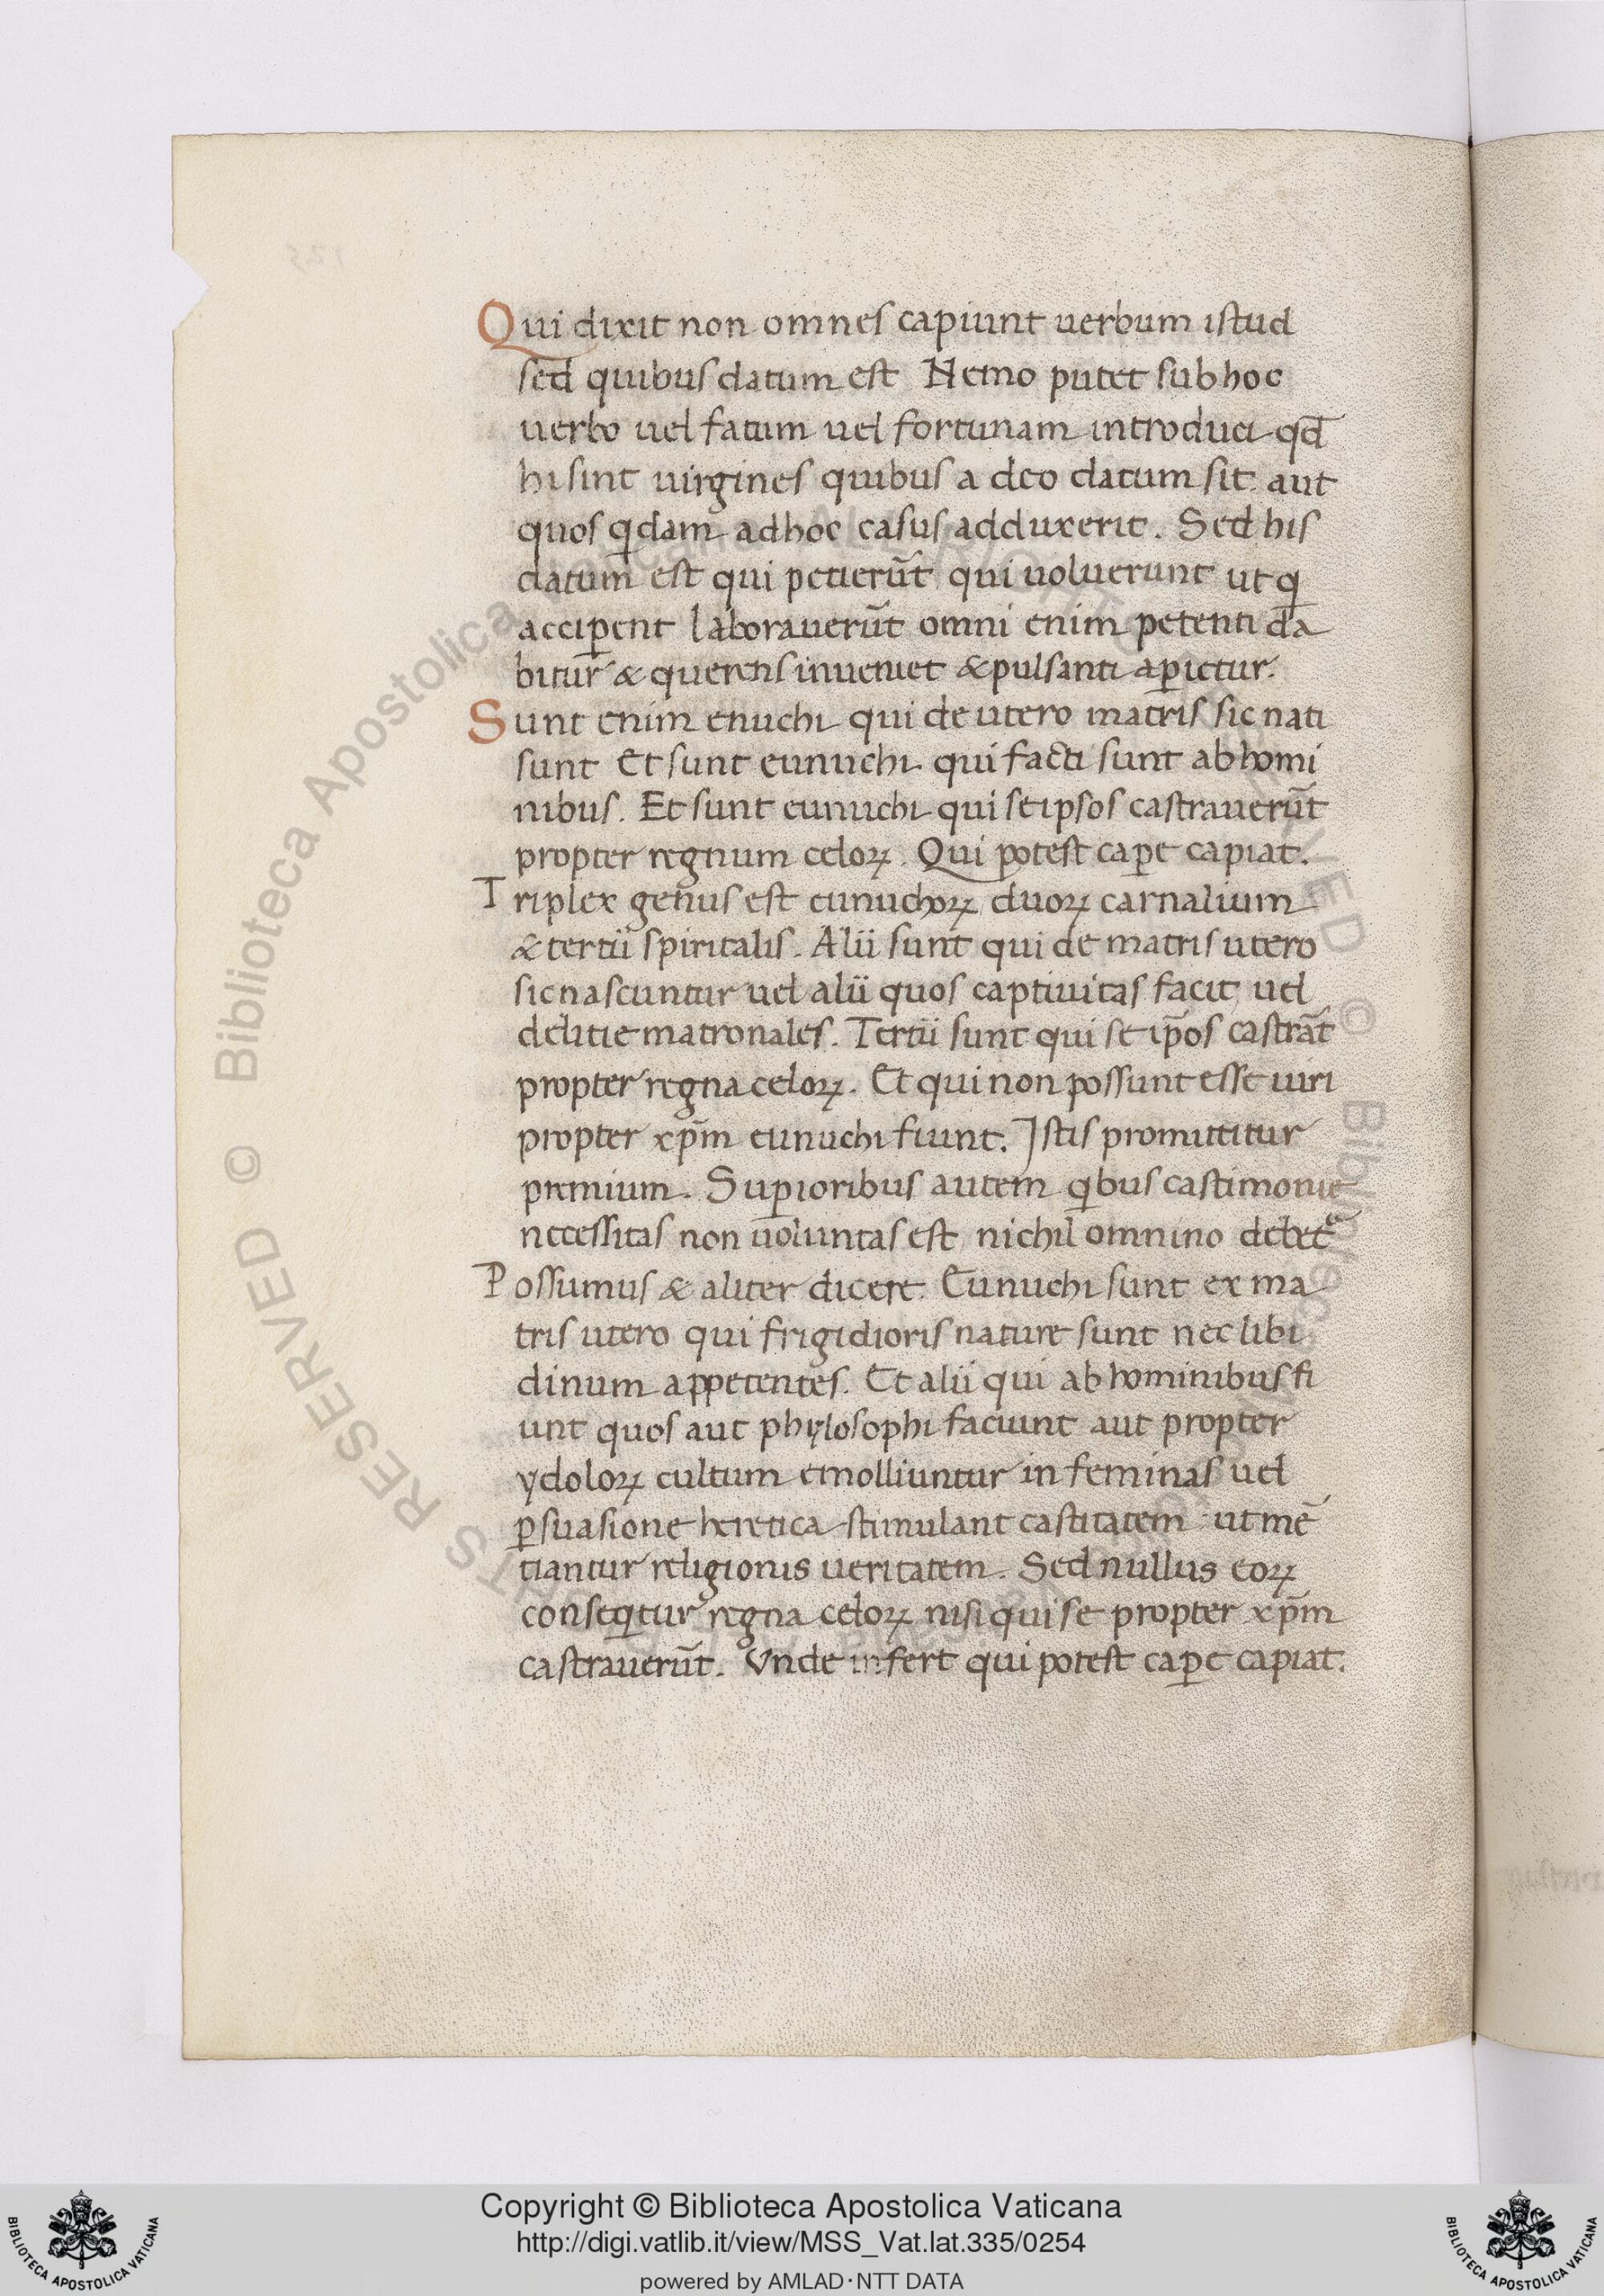 Qui dixit non omnes capiunt uerbum istud
sed quibus datum est Nemo putet sub hoc
uerbo uel fatum uel fortunam introduci qd̄
hi sint uirgines quibus a deo datum sit aut
quos qͥdam ad hoc casus adduxerit. Sed his
datum est qui petierūt qui uoluerunt ut qͥ
acciꝑent laborauerūt omni enim petenti da
bitur & querens inueniet & pulsanti aꝑietur.
Sunt enim enuchi qui de utero matris sic nati
sunt Et sunt eunuchi qui facti sunt ab homi
nibus. Et sunt eunuchi qui se ipsos castrauerūt
propter regnum celoꝝ. Qui potest caꝑe capiat.
Triplex genus est eunuchoꝝ duoꝝ carnalium
& tertii spiritalis. Alii sunt qui de matris utero
sic nascuntur uel alii quos captiuitas facit uel
delitie matronales. Tertii sunt qui se ip̄os castrāt
propter regna celoꝝ. Et qui non possunt esse uiri
propter xp̄m eunuchi fiunt. Istis promittitur
premium. Suꝑioribus autem qͥbus castimonie
necessitas non uoluntas est nichil omnino debet᷒
Possumus & aliter dicere. Eunuchi sunt ex ma
tris utero qui frigidioris nature sunt nec libi
dinum appetentes. Et alii qui ab hominibus fi
unt quos aut phylosophi faciunt aut propter
ydoloꝝ cultum emolliuntur in feminas uel
ꝑsuasione heretica stimulant castitatem ut mē
tiantur religionis ueritatem. Sed nullus eoꝝ
conseqͥtur regna celoꝝ nisi qui se propter xp̄m
castrauerūt. Vnde infert qui potest caꝑe capiat.
Copyright © Biblioteca Apostolica Vaticana
http://digi.vatlib.it/view/MSS_Vat.lat.335/0254
powered by AMLAD·NTT DATA
BIBLIOTECA APOSTOLICA VATICANA
BIBLIOTECA APOSTOLICA VATICANA